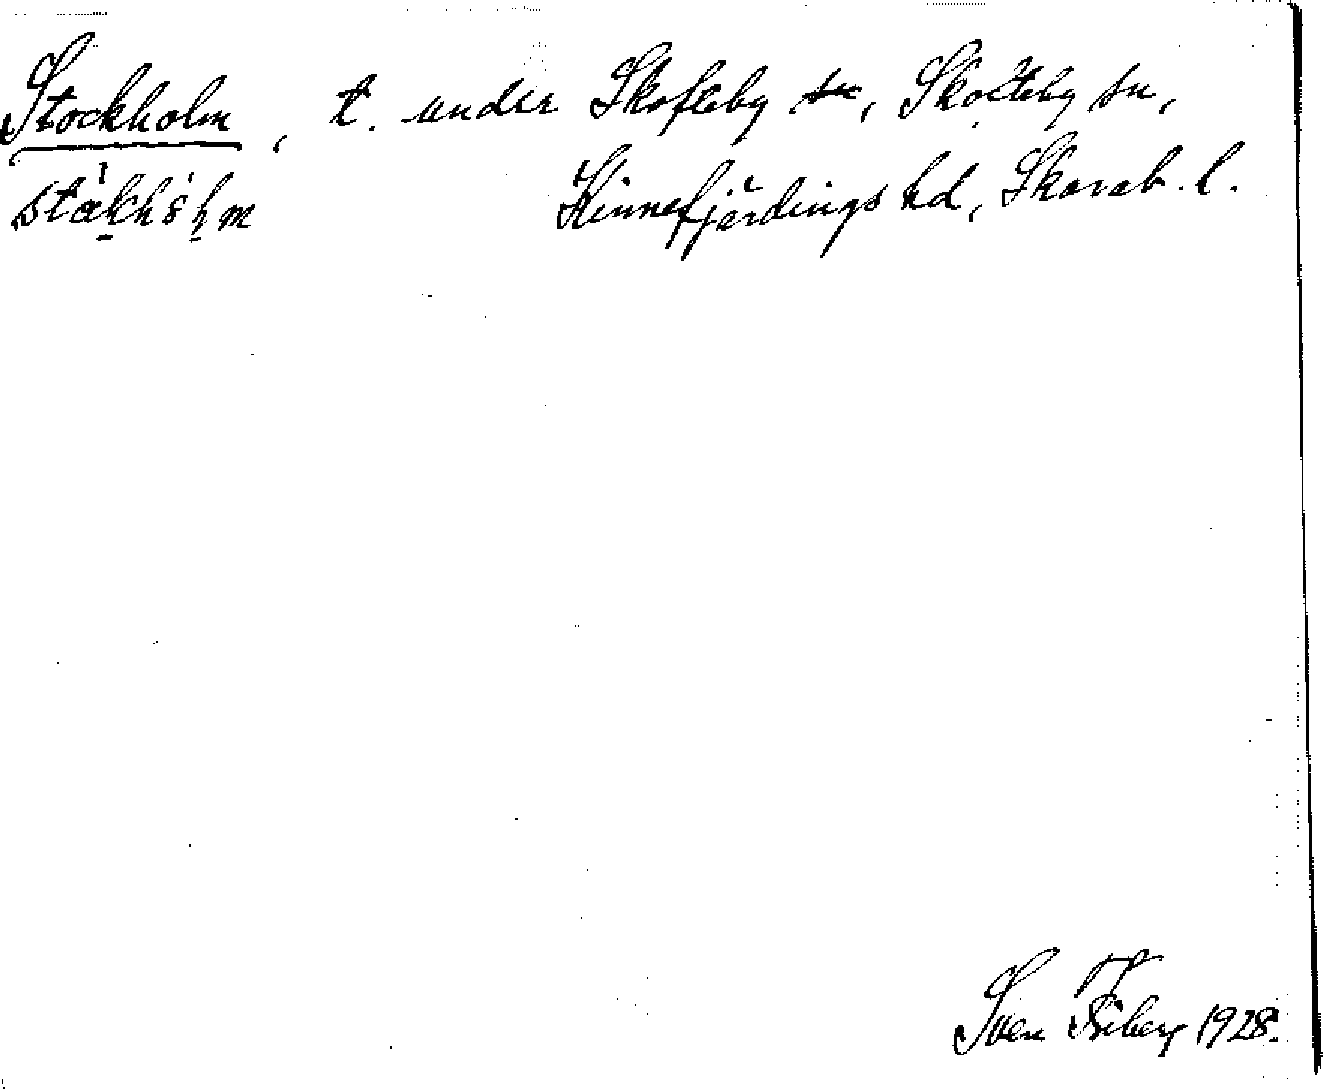 Stockholm, t. under Skofteby sn, Skofteby sn,
Kinnefjärdings hd, Skarab. l.
Sven Fiberg 1928.